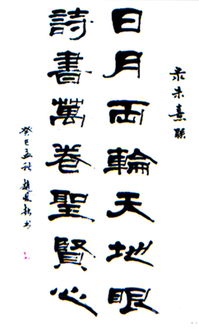 录朱熹联
日月両輪天地眼
詩書萬卷聖賢心
癸巳孟秋 書